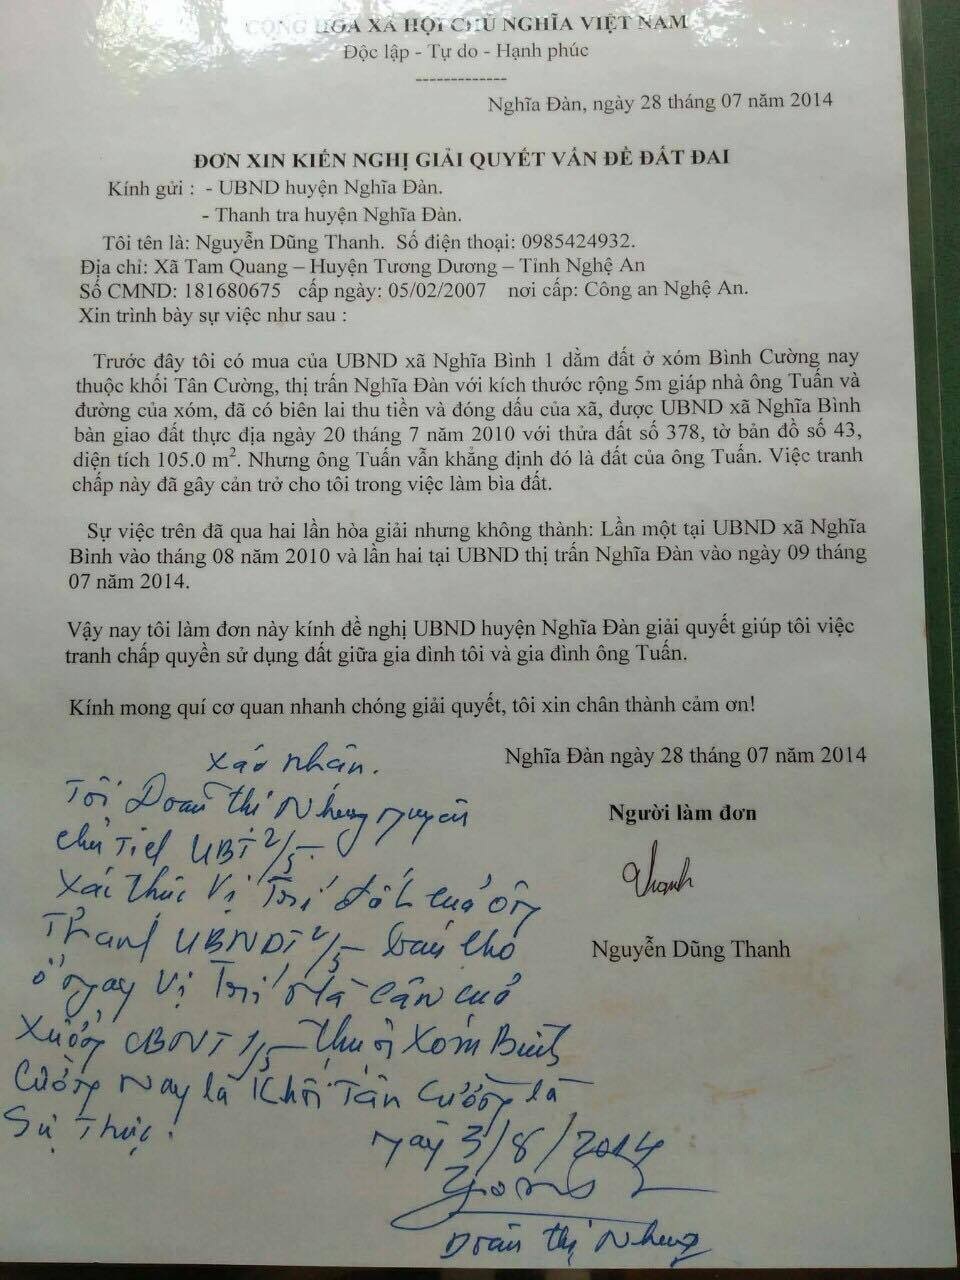 CỘNG HÒA XÃ HỘI CHỦ NGHĨA VIỆT NAM
Độc lập - Tự do - Hạnh phúc
-------------
Nghĩa Đàn, ngày 28 tháng 07 năm 2014
ĐƠN XIN KIẾN NGHỊ GIẢI QUYẾT VẤN ĐỀ ĐẤT ĐAI
Kính gửi : - UBND huyện Nghĩa Đàn.
- Thanh tra huyện Nghĩa Đàn.
Tôi tên là: Nguyễn Dũng Thanh. Số điện thoại: 0985424932.
Địa chỉ: Xã Tam Quang – Huyện Tương Dương – Tỉnh Nghệ An
Số CMND: 181680675 cấp ngày: 05/02/2007 nơi cấp: Công an Nghệ An.
Xin trình bày sự việc như sau :
Trước đây tôi có mua của UBND xã Nghĩa Bình 1 dằm đất ở xóm Bình Cường nay
thuộc khối Tân Cường, thị trấn Nghĩa Đàn với kích thước rộng 5m giáp nhà ông Tuấn và
đường của xóm, đã có biên lai thu tiền và đóng dấu của xã, được UBND xã Nghĩa Bình
bàn giao đất thực địa ngày 20 tháng 7 năm 2010 với thửa đất số 378, tờ bản đồ số 43,
diện tích 105.0 m². Nhưng ông Tuấn vẫn khẳng định đó là đất của ông Tuấn. Việc tranh
chấp này đã gây cản trở cho tôi trong việc làm bìa đất.
Sự việc trên đã qua hai lần hòa giải nhưng không thành: Lần một tại UBND xã Nghĩa
Bình vào tháng 08 năm 2010 và lần hai tại UBND thị trấn Nghĩa Đàn vào ngày 09 tháng
07 năm 2014.
Vậy nay tôi làm đơn này kính đề nghị UBND huyện Nghĩa Đàn giải quyết giúp tôi việc
tranh chấp quyền sử dụng đất giữa gia đình tôi và gia đình ông Tuấn.
Kính mong quí cơ quan nhanh chóng giải quyết, tôi xin chân thành cảm ơn!
Nghĩa Đàn ngày 28 tháng 07 năm 2014
Người làm đơn
Thanh
Nguyễn Dũng Thanh
Xác nhận.
Tôi Doãn thị Nhung nguyên
chủ tịch 2/5
Xác thực vị trí đất của ông
Thanh 2/5 bán cho
ở ngay vị trí nhà cân của
xưởng 1/5 thuộc xóm Bình
Cường nay là khối Tân Cường là
sự thực.
ngày 3/8/2014
Doãn thị Nhung